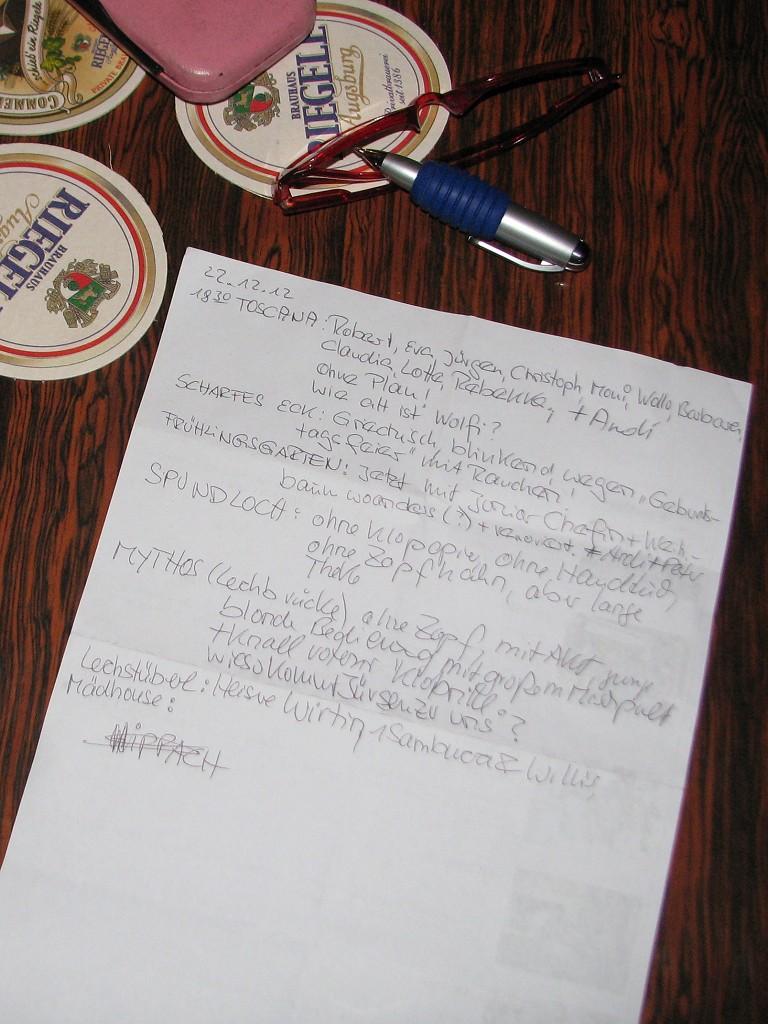 BRAUHAUS
RIEGELE
Augsburg
Privatbrauerei
seit 1386
BRAUHAUS
RIEGEL
Augs
COMMER
RIEGE
PRIVATE BRA
22.12.12
18 30 TOSCANA: Robert, Eva, Jürgen, Christoph, Moni, Wollo, Barbara,
Claudia, Lotte, Rebekka, + Andi
ohne Plan!
wie alt ist Wolfi?
SCHARFES ECK: Griechisch, blinkend, wegen „Geburts-
tagsfeier" mit Rauchen!
FRÜHLINGSGARTEN: Jetzt mit Junior Chefin + Weih-
baum woanders (?) + renoviert +
SPUNDLOCH: ohne Klopapier, ohne Handtuch,
ohne Zapfhahn, aber lange
Theke
MYTHOS (Lechbrücke), ohne Zapf, mit Akt, junge
blonde Bedienung mit großem
+ knall roter Klobrille
wieso kommt Jürgen zu uns?
Lechstüberl: Heisere Wirtin, 1 Sambuca & Willis,
Mädhouse: